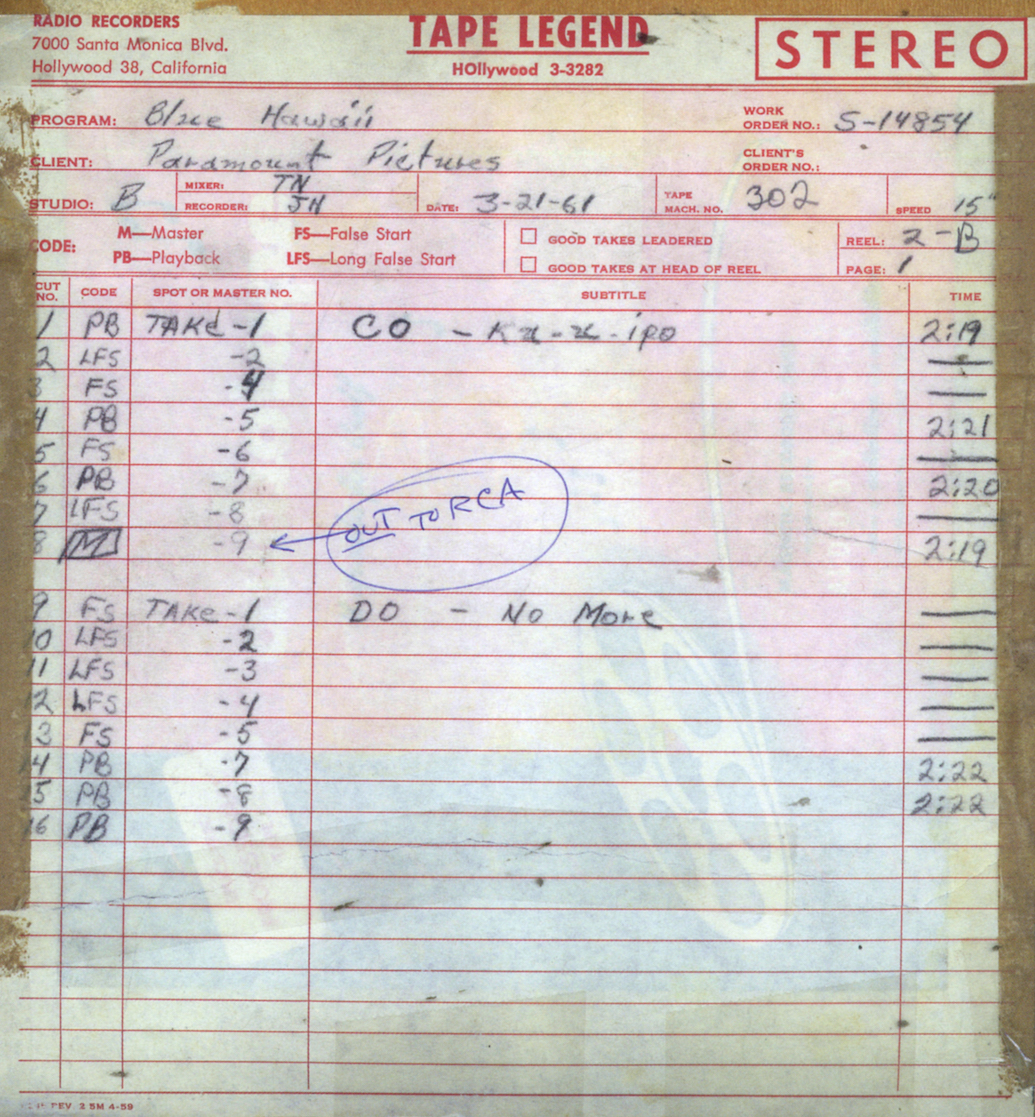 RADIO RECORDERS
7000 Santa Monica Blvd.
Hollywood 38, California
TAPE LEGEND
HOllywood 3-3282
STEREO
PROGRAM: Blue Hawaii WORK ORDER NO.: S-14854
CLIENT: Paramount Pictures CLIENT'S ORDER NO.:
STUDIO: B MIXER: TN RECORDER: JH DATE: 3-21-61 TAPE MACH. NO. 302 SPEED 15"
CODE: M—Master FS—False Start GOOD TAKES LEADERED REEL: 2-B
PB—Playback LFS—Long False Start GOOD TAKES AT HEAD OF REEL PAGE: 1
CUT NO. CODE SPOT OR MASTER NO. SUBTITLE TIME
1 PB TAKE -1 CO - Ku-u-ipo 2:19
2 LFS -2 —
3 FS -4 —
4 PB -5 2:21
5 FS -6 —
6 PB -7 2:20
7 LFS -8 —
8 M -9 OUT TO RCA 2:19
9 FS TAKE -1 DO - No More —
10 LFS -2 —
11 LFS -3 —
12 LFS -4 —
3 FS -5 —
14 PB -7 2:22
5 PB -8 2:22
16 PB -9
REV. 2 5M 4-59